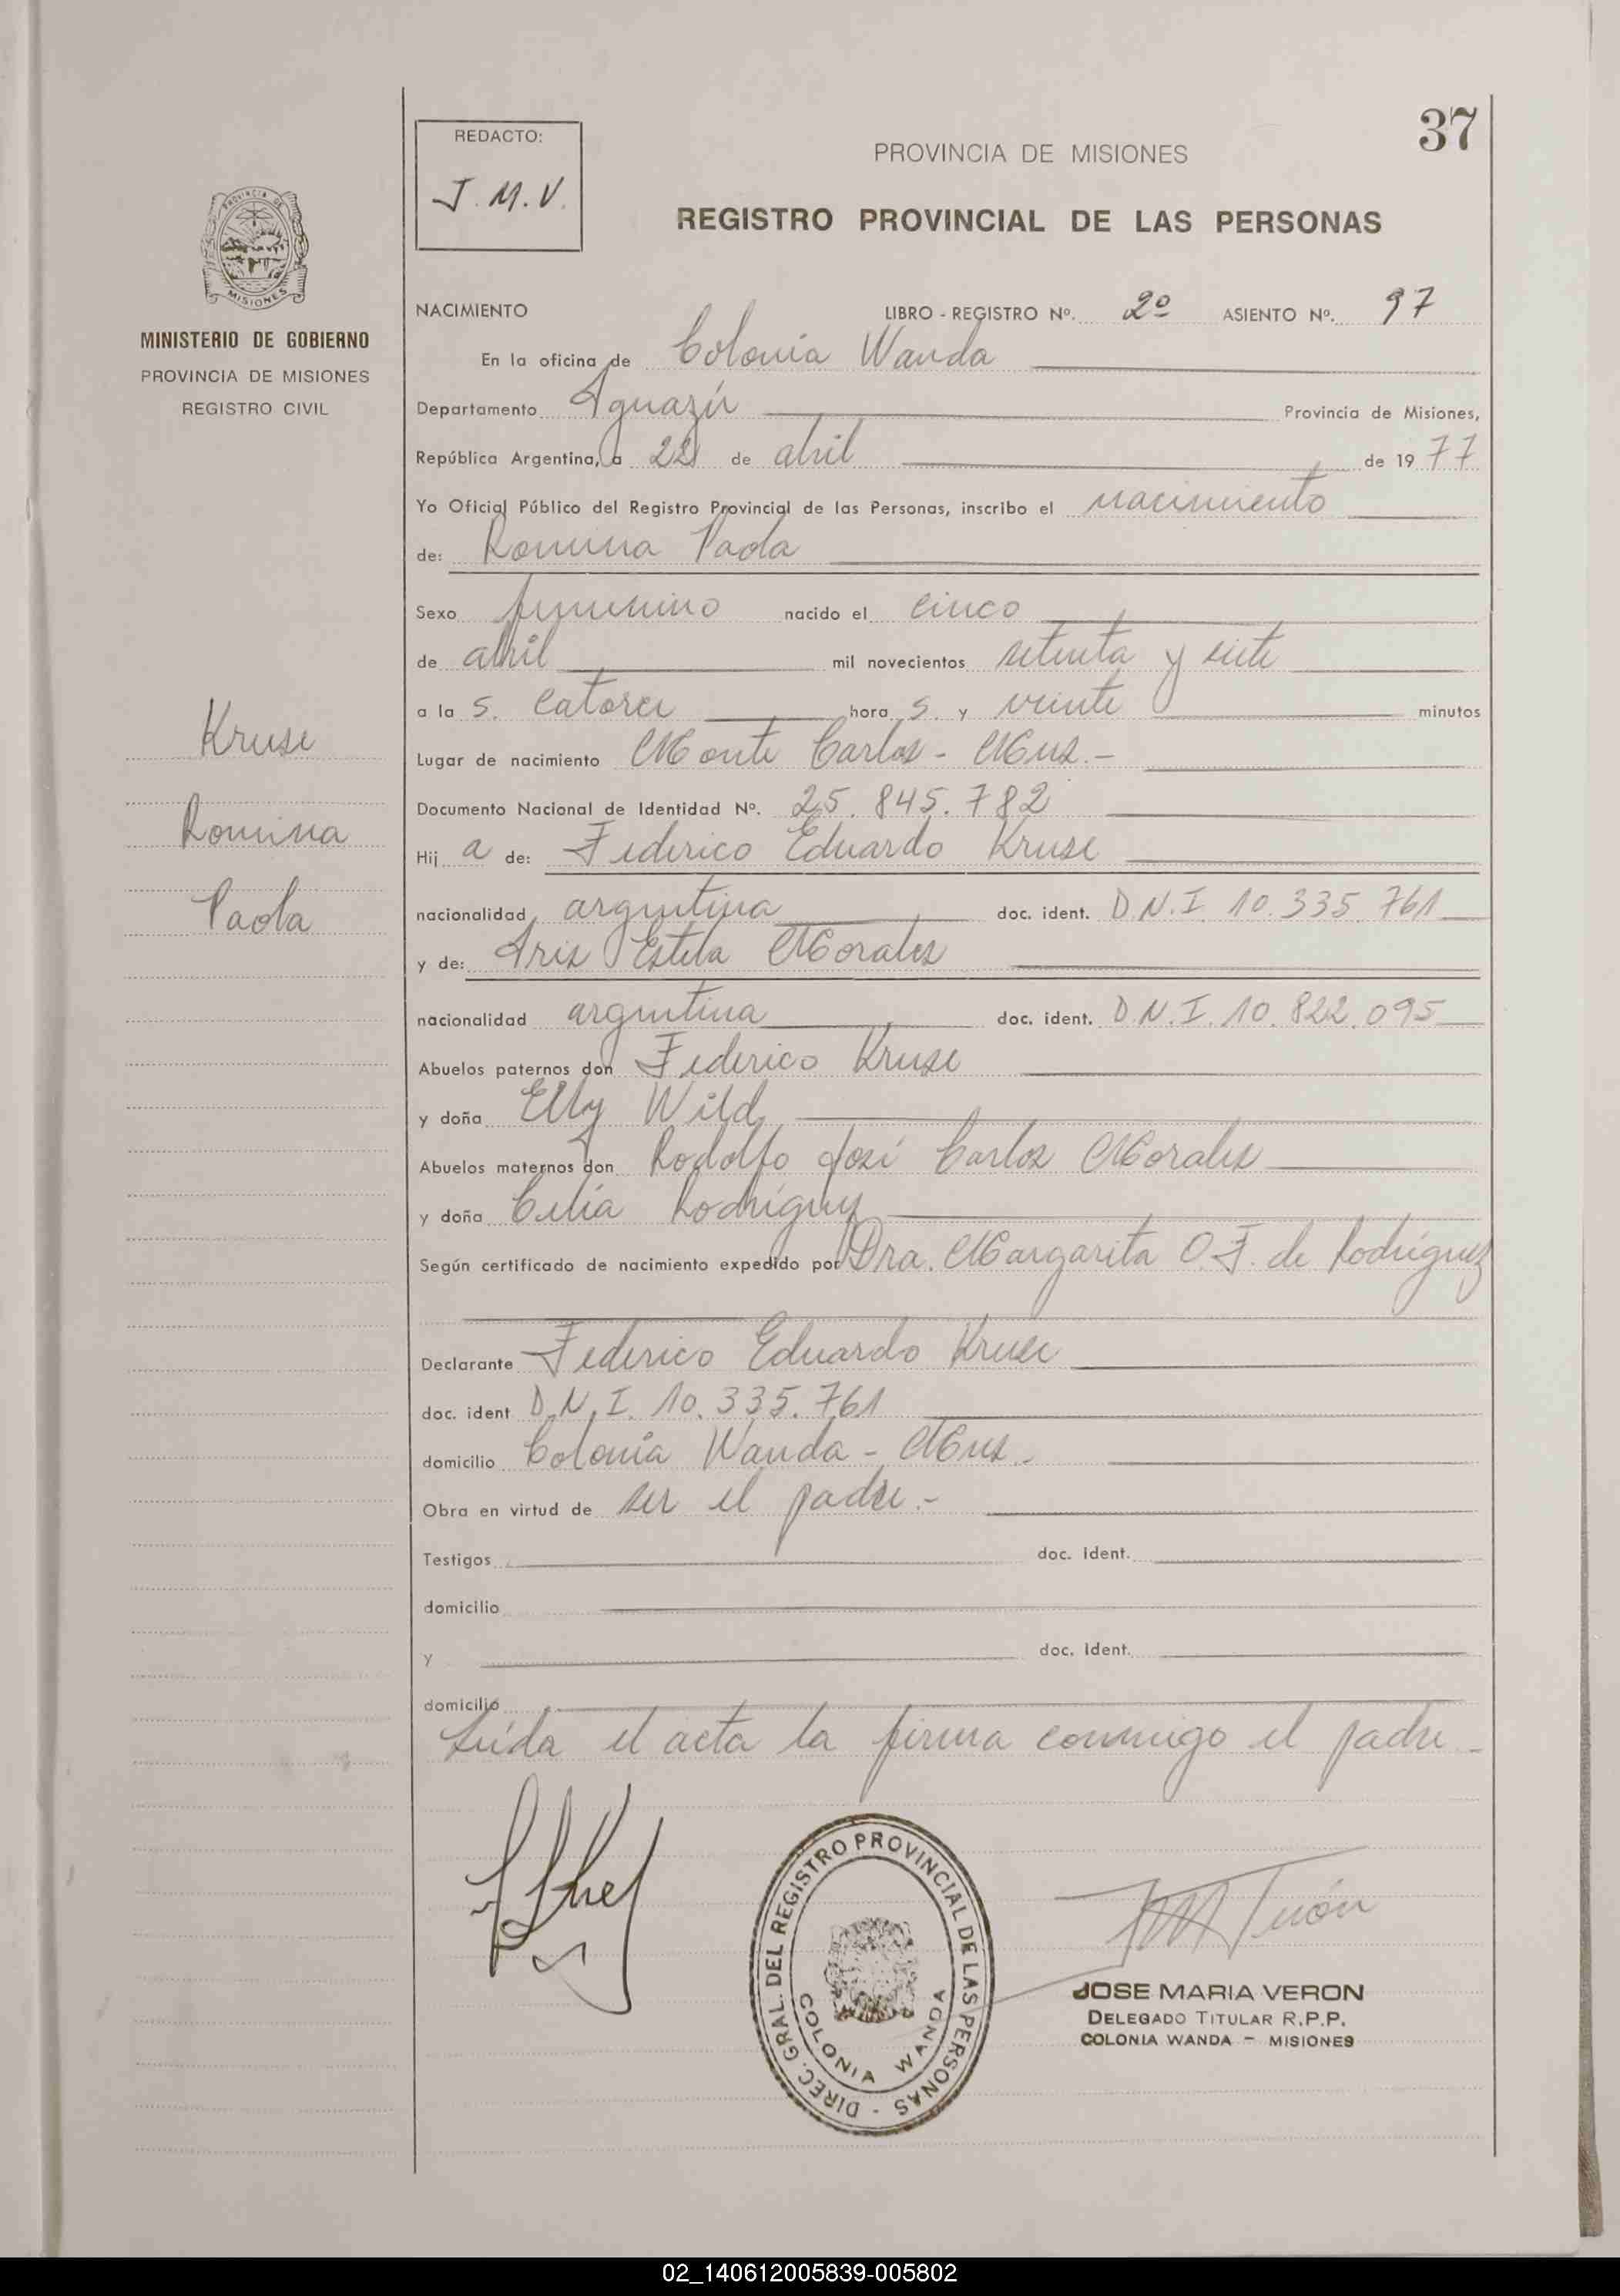 37
REDACTO:
J. M. V.
PROVINCIA DE MISIONES
REGISTRO PROVINCIAL DE LAS PERSONAS
PROVINCIA DE
MISIONES
MINISTERIO DE GOBIERNO
PROVINCIA DE MISIONES
REGISTRO CIVIL
Kruse
Romina
Paola
NACIMIENTO LIBRO - REGISTRO Nº. 2º ASIENTO Nº. 97
En la oficina de Colonia Wanda
Departamento Iguazú Provincia de Misiones,
República Argentina, a 22 de abril de 1977
Yo Oficial Público del Registro Provincial de las Personas, inscribo el nacimiento
de: Romina Paola
Sexo femenino nacido el cinco
de abril mil novecientos setenta y siete
a la s. catorce hora s. y veinte minutos
Lugar de nacimiento Monte Carlos - Mns.-
Documento Nacional de Identidad Nº. 25.845.782
Hij a de: Federico Eduardo Kruse
nacionalidad argentina doc. ident. D.N.I. 10.335.761
y de: Iris Estela Morales
nacionalidad argentina doc. ident. D.N.I. 10.822.095
Abuelos paternos don Federico Kruse
y doña Elly Wild
Abuelos maternos don Rodolfo José Carlos Morales
y doña Celia Rodriguez
Según certificado de nacimiento expedido por Dra. Margarita O. F. de Rodriguez
Declarante Federico Eduardo Kruse
doc. ident D.N.I. 10.335.761
domicilio Colonia Wanda - Mns.
Obra en virtud de ser el padre.-
Testigos doc. Ident.
domicilio
y doc. Ident.
domicilio
Leída el acta la firma conmigo el padre -
DIREC. GRAL. DEL REGISTRO PROVINCIAL DE LAS PERSONAS -
COLONIA WANDA
JOSE MARIA VERON
DELEGADO TITULAR R.P.P.
COLONIA WANDA - MISIONES
02_140612005839-005802